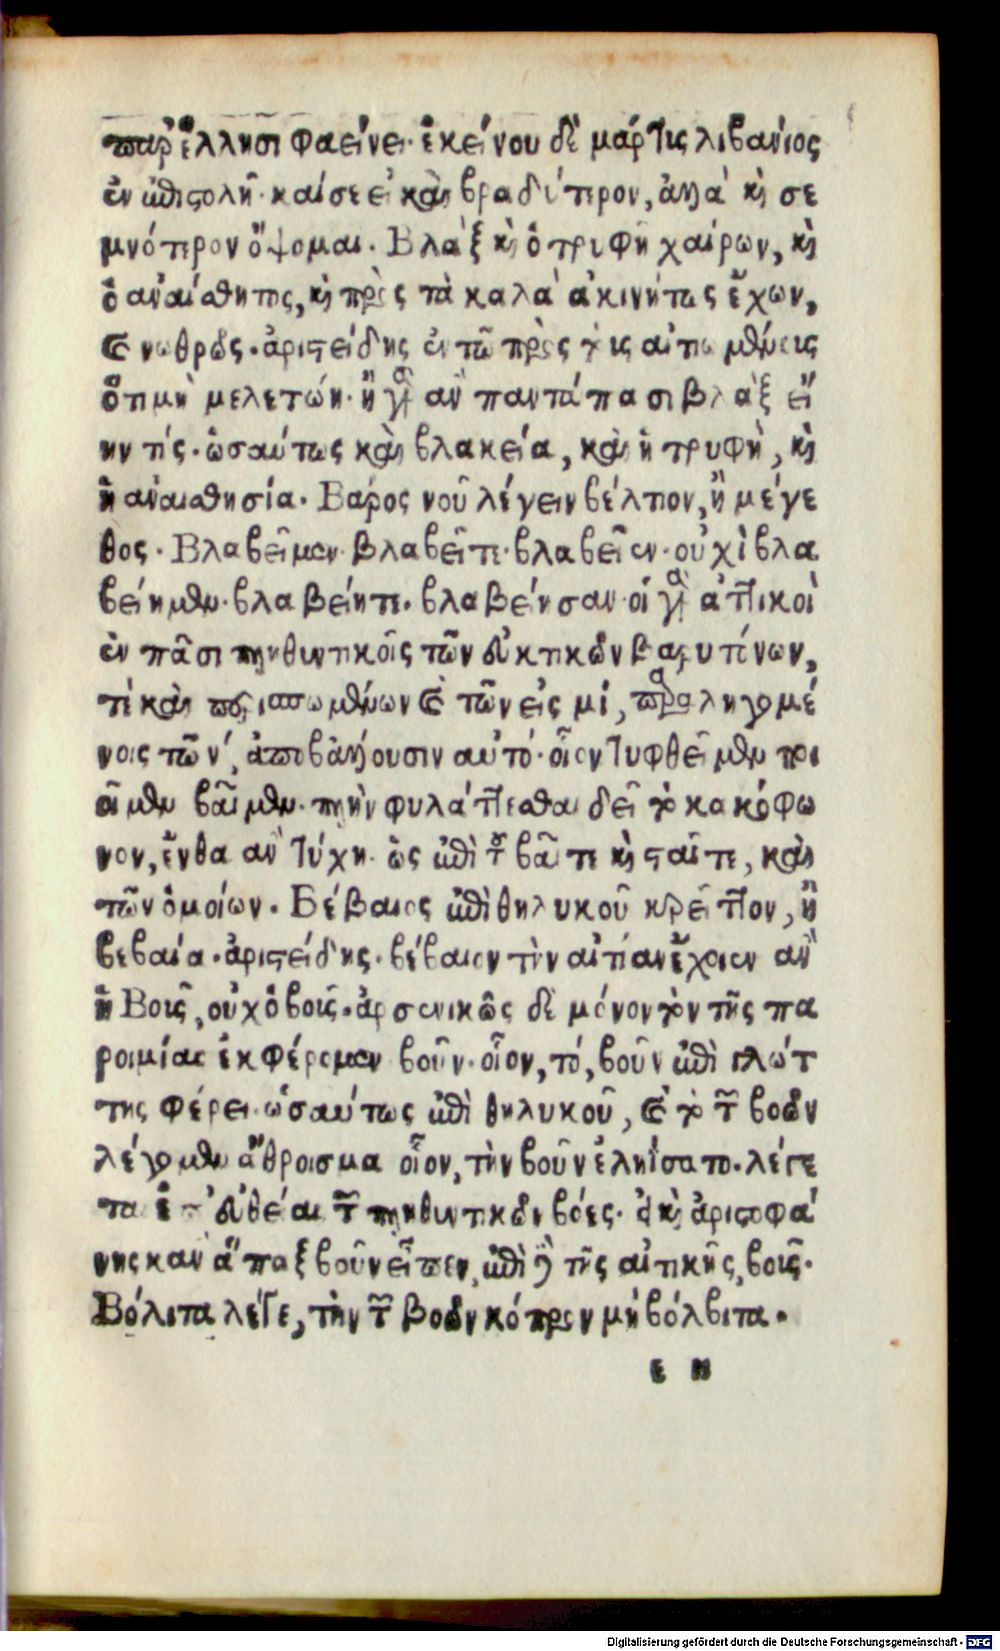 παρ' ἕλλησι φαείνει· ἐκείνου δὲ μάρτις λιβανίος
ἐν ἐπιστολῆ· καί σε εἰ καὶ βραδύτερον, ἀλλὰ καὶ σε
μνότερον ὄψομαι. Βλὰξ καὶ ὁ τρυφῆ χαίρων, καὶ
ὁ ἀναίσθητος, καὶ πρὸς τὰ καλὰ ἀκινήτως ἔχων,
καὶ νωθρῶς. ἀριστείδης ἐν τῶ πρὸς τοὺς αἰτιωμένους
ὅτι μὴ μελετώη· ἢ γὰρ ἂν παντάπασι βλὰξ εἴ
ην τίς. ὡσαύτως καὶ βλακεία, καὶ ἡ τρυφὴ, καὶ
ἡ ἀναισθησία. Βάρος νοῦ λέγειν βέλτιον, ἢ μέγε
θος. Βλαβεῖμεν· βλαβεῖτε· βλαβεῖεν· οὐχὶ βλα
βείημεν· βλαβείητε. βλαβείησαν· οἱ γὰρ ἀττικοὶ
ἐν πᾶσι πληθυντικοῖς τῶν εὐκτικῶν βαρυτόνων,
τὲ καὶ περισπωμένων καὶ τῶν εἰς μί, παραληγομέ
νοις τῶ ν', ἀποβάλλουσιν αὐτό· οἷον τυφθεῖμεν ποι
οῖμεν βαῖμεν· πλὴν φυλάττεσθαι δεῖ τὸ κακόφω
νον, ἔνθα ἂν τύχη· ὡς ἐπὶ τοῦ βαῖτε καὶ σταῖτε, καὶ
τῶν ὁμοίων. Βέβαιος ἐπὶ θηλυκοῦ κρεῖττον, ἢ
βεβαία. ἀριστείδης. βέβαιον τὴν αἰτίαν ἔχοιεν ἂν
ἡ Βοῦς, οὐχ ὁ βοῦς. ἀρσενικῶς δὲ μόνον τὸν τῆς πα
ροιμίας ἐκφέρομεν βοῦν· οἷον, τό, βοῦν ἐπὶ γλώτ
της φέρει· ὡσαύτως ἐπὶ θηλυκοῦ, καὶ τὸ τῶν βοῶν
λέγομεν ἄθροισμα οἷον, τὴν βοῦν ἐληΐσατο. λέγε
ται εὐθείαι τῶν πληθυντικῶν βόες. εἰ καὶ ἀριστοφά
νης κἂν ἅπαξ βοῦν εἶπεν, ἐπὶ δὲ τῆς αἰτικῆς, βοῦς.
Βόλιτα λέγε, τὴν τῶν βοῶν κόπρον μὴ βόλβιτα.
ε ii
Digitalisierung gefördert durch die Deutsche Forschungsgemeinschaft - DFG